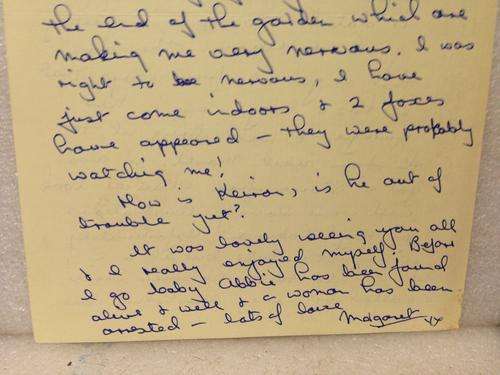 the end of the garden which are
making me very nervous. I was
right to be nervous, I have
just come indoors & 2 foxes
have appeared - they were probably
watching me!
How is Keiron, is he out of
trouble yet?
It was lovely seeing you all
& I really enjoyed myself. Before
I go baby Abbie has been found
alive & well & a woman has been
arrested - lots of love
Margaret xx